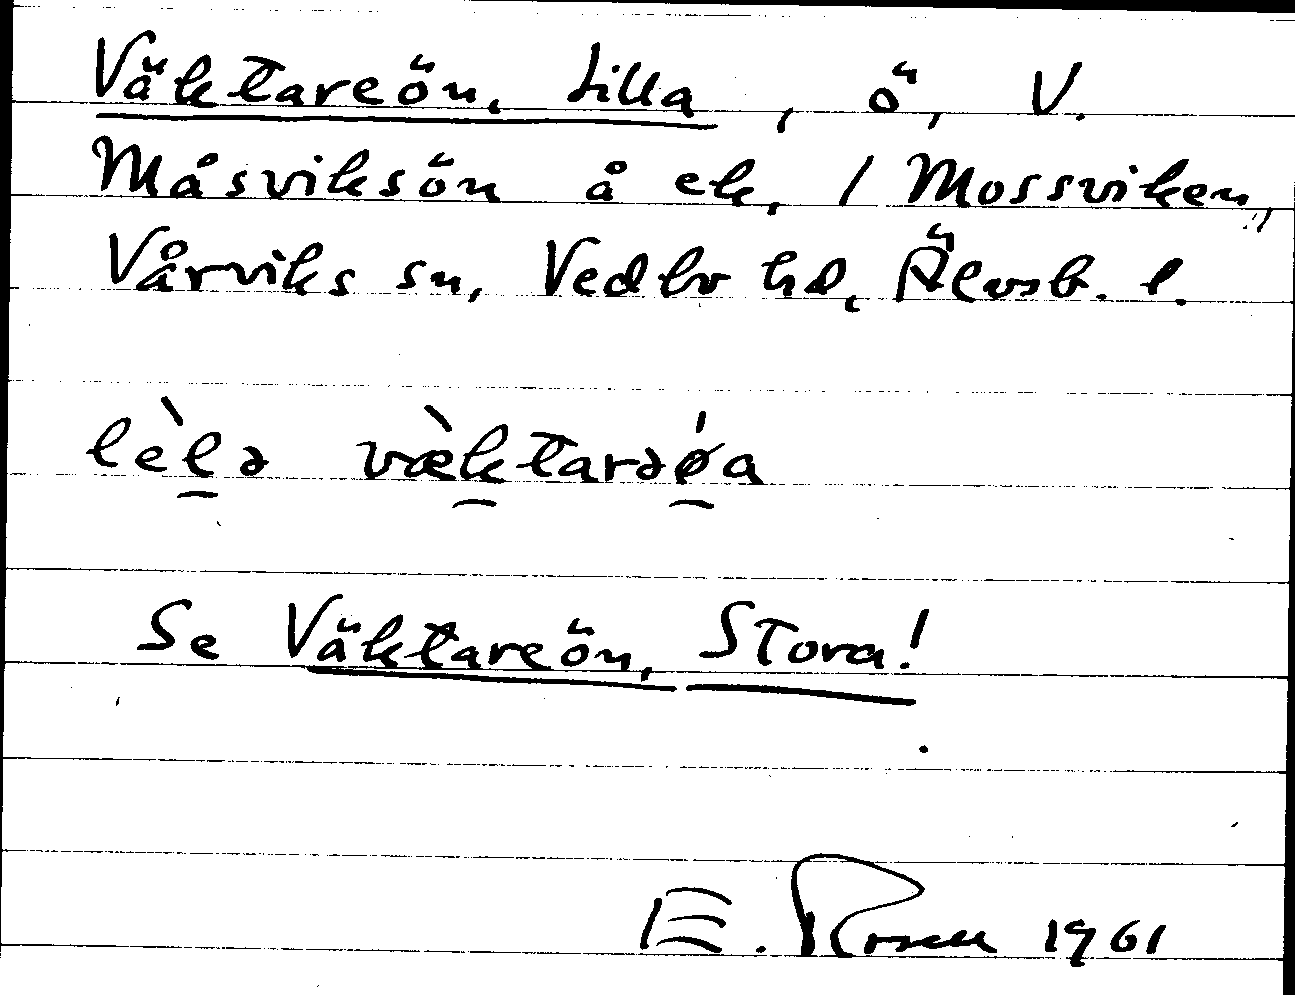 Väktareön, Lilla, ö, V.
Måsviksön å ek, / Mossviken,
Vårviks sn, Vedbo hd, Älvsb. l.
lèlə væ̀ktarəǿa
Se Väktareön, Stora!
E. Rosen 1961